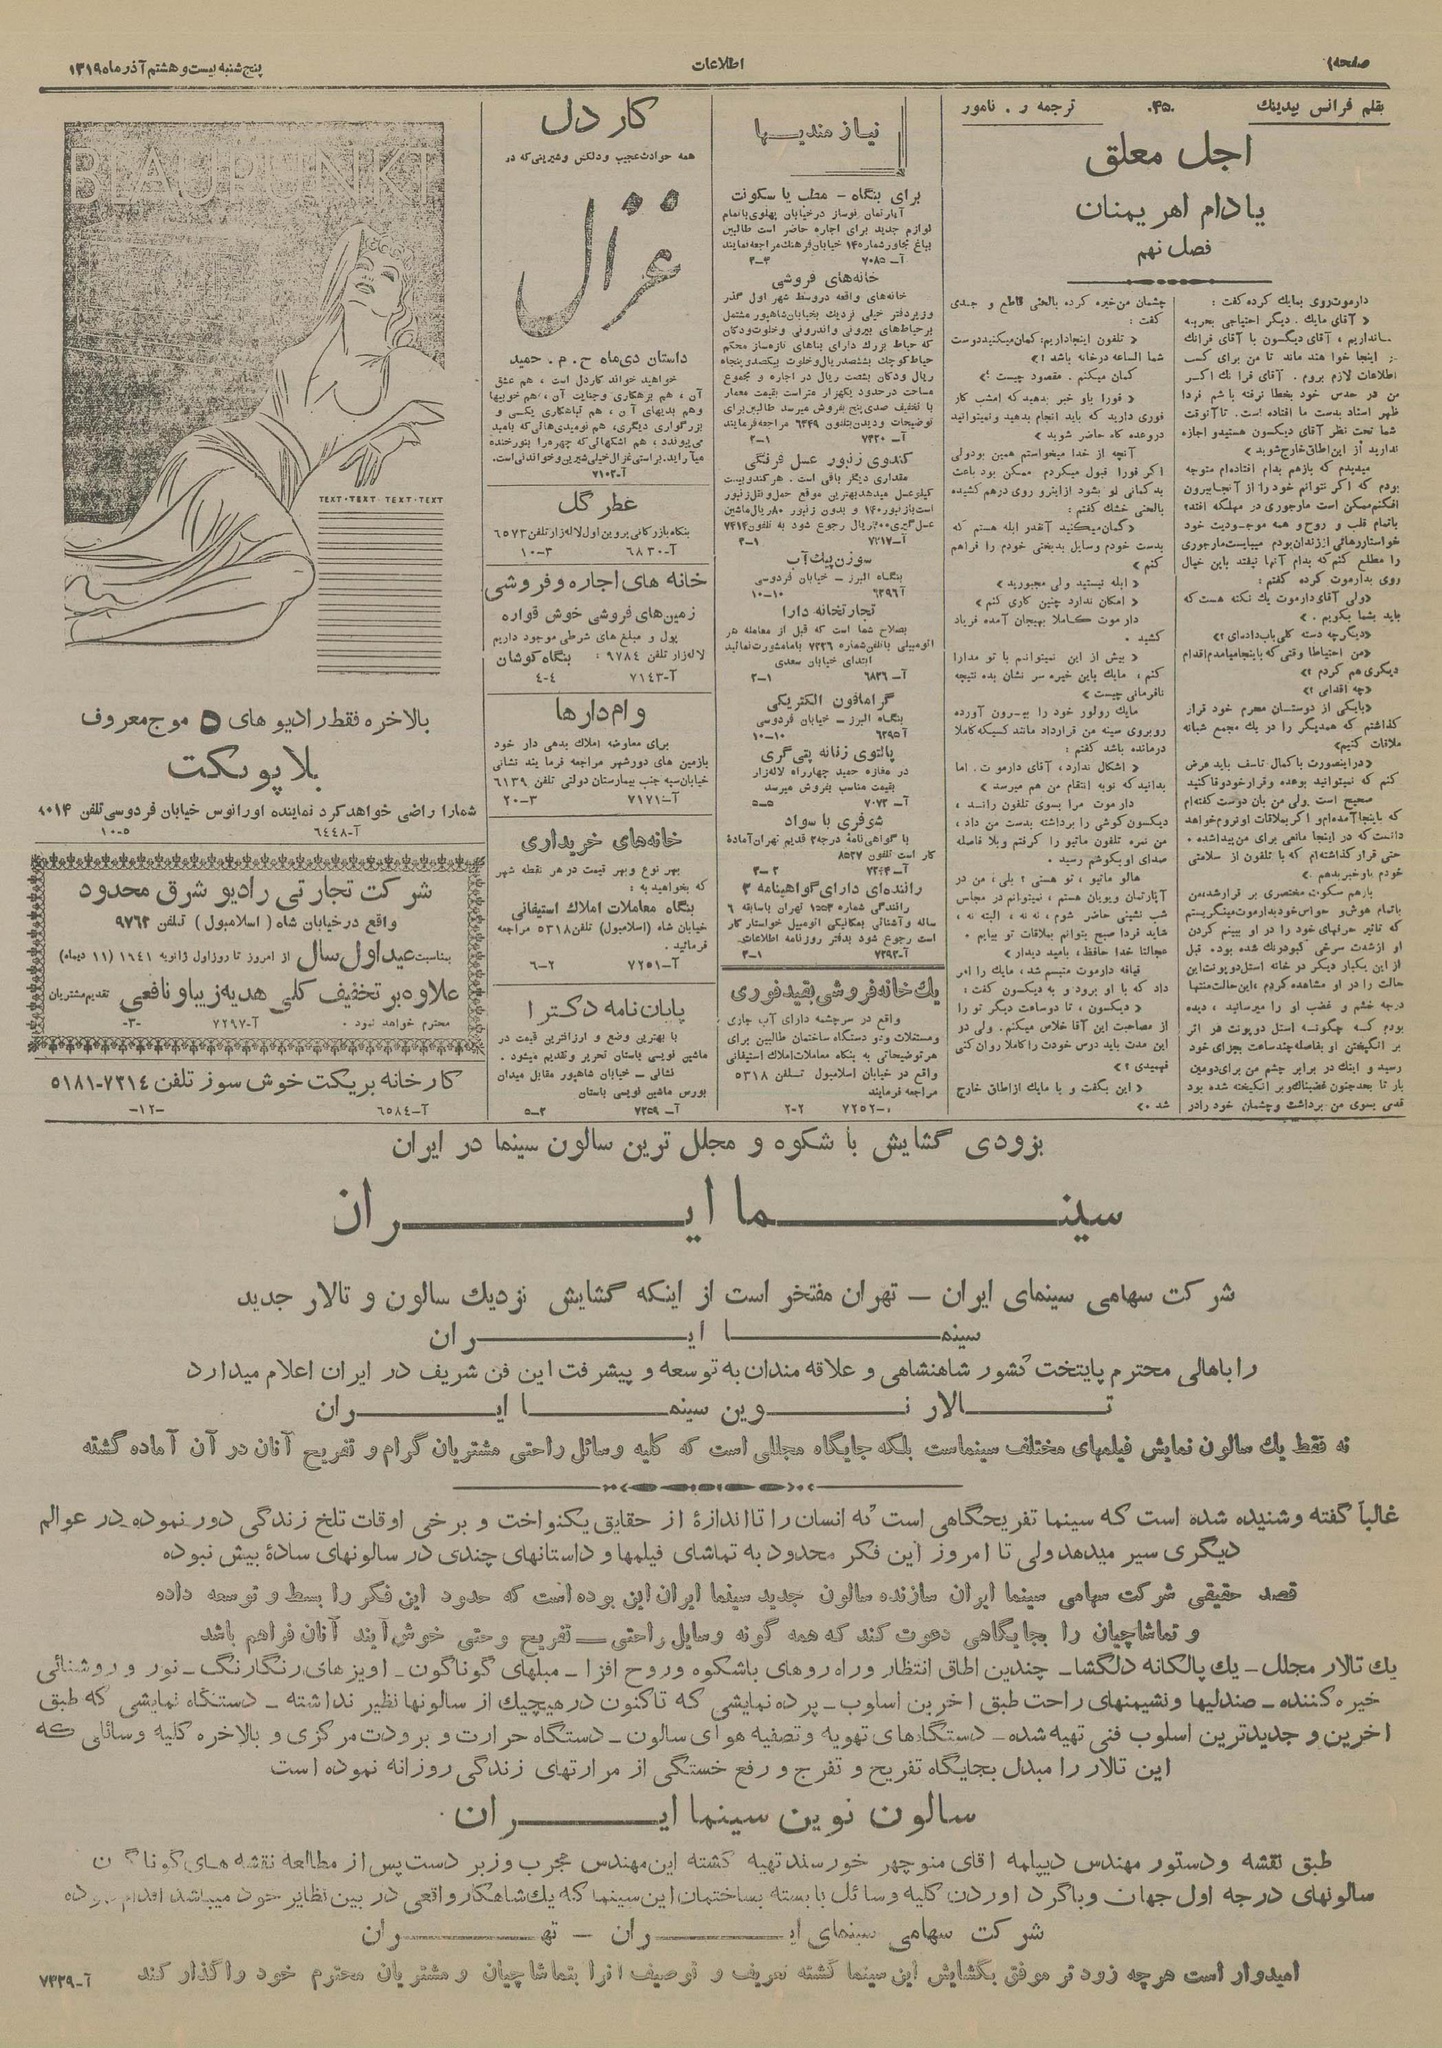 صفحه ۱
اطلاعات
پنج شنبه بیست و هشتم آذر ماه ۱۳۱۹
بقلم فرانس پیدینک
۰۴۵۰
ترجمه ر . نامور
اجل معلق
یا دام اهریمنان
فصل نهم
دارموت روی بمایک کرده گفت :
« آقای مایک . دیگر احتیاجی بحربه
نداریم ، آقای دیگسون با آقای فرانک
اینجا خواهند ماند تا من برای کسب
اطلاعات لازم بروم . آقای فرانک اکسر
من در حدس خود بخطا نرفته باشم فردا
ظهر اسناد بدست ما افتاده است . تا آنوقت
شما تحت نظر آقای دیکسون هستید و اجازه
ندارید از این اطاق خارج شوید »
میدیدم که بازهم بدام افتاده‌ام متوجه
بودم که اگر نتوانم خود را از آنجا بیرون
افکنم ممکن است مارجوری در مهلکه افتد؟
باتمام قلب و روح و همه موجودیت خود
خواستار رهائی از زندان بودم میبایست مارجوری
را مطلع کنم که بدام آنها نیفتد باین خیال
روی بدارموت کرده گفتم :
«ولی آقای دارموت یك نکته هست که
باید بشما بگویم . »
«دیگر چه دسته گلی بآب داده‌ای ؟»
«من احتیاطا وقتی که باینجا میامدم اقدام
دیگری هم کردم ؟»
«چه اقدامی ؟»
«بایکی از دوستان محرم خود قرار
گذاشتم که همدیگر را در یك مجمع شبانه
ملاقات کنیم»
«در اینصورت با کمال تاسف باید عرض
کنم که نمیتوانید بوعده و قرار خود وفا کنید
صحیح است ولی من بان دوست گفته‌ام
که باینجا آمده‌ام و اگر بملاقات او نروم خواهد
دانست که در اینجا مانعی برای من پیدا شده .
حتی قرار گذاشته‌ام که با تلفون از سلامتی
خودم باو خبر بدهم . »
بازهم سکوت مختصری بر قرار شد، من
باتمام هوش و حواس خود بدارموت مینگریستم
که تاثیر حرفهای خود را در او ببینم گردن
او از شدت سرخی کبود رنك شده بود . قبل
از این یکبار دیگر در خانه استل دوپونت این
حالت را در او مشاهده کردم ، این حالت منتها
درجه خشم و غضب او را میرسانید ، دیده
بودم که چگونه استل دوپونت هر اثر
بر انگیختن او بفاصله چند ساعت بجزای خود
رسید و اینك در برابر چشم من برای دومین
بار تا بحد جنون غضبناك و بر انگیخته شده بود
قدمی بسوی من برداشت و چشمان خود را در
چشمان من خیره کرده بالحنی قاطع و جدی
گفت :
« تلفون اینجا داریم: گمان میکنید دوست
شما الساعه در خانه باشد ؟»
گمان میکنم . مقصود چیست ؟»
« فورا باو خبر بدهید که امشب کار
فوری دارید که باید انجام بدهید و نمیتوانید
در وعده گاه حاضر شوید »
آنچه از خدا میخواستم همین بود ولی
اگر فورا قبول میکردم ممکن بود باعث
بد گمانی او بشود از اینرو روی درهم کشیده
بالحنی خشك گفتم :
« گمان میکنید آنقدر ابله هستم که
بدست خودم وسایل بدبختی خودم را فراهم
کنم »
« ابله نیستید ولی مجبورید »
« امکان ندارد چنین کاری کنم »
دارموت کاملا بهیجان آمده فریاد
کشید .
« بیش از این نمیتوانم با تو مدارا
کنم ، مایك باین خیره سر نشان بده نتیجه
نافرمانی چیست »
مایك رولور خود را بیرون آورده
روبروی سینه من قرارداد مانند کسیکه کاملا
درمانده باشد گفتم :
« اشکال ندارد ، آقای دارموت . اما
بدانید که نوبه انتقام من هم میرسد »
دارموت مرا بسوی تلفون راند ،
دیکسون گوشی را برداشته بدست من داد ،
من نمره تلفون ماتیو را گرفتم و بلا فاصله
صدای او بگوشم رسید .
هالو ماتیو ، تو هستی ؟ بلی ، من در
آپارتمان ویویان هستم ، نمیتوانم در مجلس
شب نشینی حاضر شوم ، نه نه ، البته نه ،
شاید فردا صبح بتوانم بملاقات تو بیایم .
عجالتا خدا حافظ ، بامید دیدار »
قیافه دارموت متبسم شد ، مایك را امر
داد که با او برود و به دیکسون گفت :
« دیکسون ، تا دو ساعت دیگر تو را
از مصاحبت این آقا خلاص میکنم . ولی در
این مدت باید درس خودت را کاملا روان کنی
فهمیدی ؟ »
« این بگفت و با مایك از اطاق خارج
شد .»
نیاز مندیها
برای بنگاه – مطب یا سکونت
آپارتمان نوساز در خیابان پهلوی باتمام
لوازم جدید برای اجاره حاضر است طالبین
بباغ مجاور شماره ۱۴ خیابان فرهنك مراجعه نمایند
آ– ۷۰۸۵ ۳–۳
خانه‌های فروشی
خانه‌های واقعه در وسط شهر اول گذر
وزیر دفتر خیلی نزدیك بخیابان شاهپور مشتمل
بر حیاط‌های بیرونی و اندرونی و خلوت و دکان
که حیاط بزرك دارای بناهای تازه ساز محکم
حیاط کوچك بششصد ریال و خلوت بیکصد و پنجاه
ریال و دکان بشصت ریال در اجاره و مجموع
مساحت در حدود یکهزار متر است بقیمت معمار
با تخفیف صدی پنج بفروش میرسد طالبین برای
توضیحات و دیدن بتلفون ۶۳۴۹ مراجعه فرمایند
آ– ۷۳۲۰ ۲–۱
کندوی زنبور عسل فرنگی
مقداری دیگر باقی است . هر کندو بیست
کیلو عسل میدهد بهترین موقع حمل و نقل زنبور
است با زنبور ۱۴۰ و بدون زنبور ۸۰ ریال ماشین
عسل گیری ۲۰۰ ریال رجوع شود به تلفون ۷۴۱۴
آ– ۷۲۱۷ ۳–۱
سوزن پیك آپ
بنگاه البرز – خیابان فردوسی
آ ۶۲۹۶ ۱۰–۱۰
تجارتخانه دارا
بصلاح شما است که قبل از معامله هر
اتومبیلی با تلفن شماره ۷۳۲۶ با ما مشورت نمائید
ابتدای خیابان سعدی
آ– ۶۸۳۶ ۳–۱
گرامافون الکتریکی
بنگاه البرز – خیابان فردوسی
آ ۶۲۹۵ ۱۰–۱۰
پالتوی زنانه پتی گری
در مغازه حمید چهارراه لاله‌زار
بقیمت مناسب بفروش میرسد
آ– ۷۰۷۲ ۵–۵
شوفری با سواد
با گواهی نامهٔ درجه ۲ قدیم تهران آمادهٔ
کار است تلفون ۸۵۲۷
راننده‌ای دارای گواهینامه ۳
رانندگی شماره ۱۵۵۳ تهران باسابقه ۶
ساله و آشنائی بمکانیکی اتومبیل خواستار کار
است رجوع شود بدفتر روزنامه اطلاعات .
آ– ۷۲۹۳ ۳–۱
یك خانه فروشی بقید فوری
واقع در سرچشمه دارای آب جاری
و مستغلات و دو دستگاه ساختمان طالبین برای
هر توضیحاتی به بنگاه معاملات املاك استیفانی
واقع در خیابان اسلامبول تلفن ۵۳۱۸
مراجعه فرمایند
۷۲۵۲–۰ ۲–۲
کار دل
همه حوادث عجیب و دلکش و شیرینی که در
غزال
داستان دی ماه ح . م . حمید
خواهید خواند کار دل است ، هم عشق
آن ، هم بزهکاری و جنایت آن ، هم خوبیها
وهم بدیهای آن ، هم تباهکاری یکی و
بزرگواری دیگری، هم نومیدی‌هائی که بامید
می‌پیوندد، هم اشکهائی که چهره را بنور خنده
میآراید. براستی غزال خیلی شیرین و خواندنی است.
آ– ۷۱۰۲
عطر گل
بنگاه بازرگانی پروین اول لاله زار تلفن ۶۵۷۳
آ– ۶۸۳۰ ۱۰–۳
خانه های اجاره و فروشی
زمین‌های فروشی خوش قواره
پول و مبلغ های شرطی موجود داریم
لاله‌زار تلفن ۹۷۸۴ : بنگاه کوشان
آ– ۷۱۴۳ ۴–۴
وام دارها
برای معاوضه املاك بدهی دار خود
بازمین های دور شهر مراجعه فرمایند نشانی
خیابان سپه جنب بیمارستان دولتی تلفن ۶۱۳۹
آ– ۷۱۷۱ ۲۰–۳
خانه‌های خریداری
بهر نوع و بهر قیمت در هر نقطه شهر
که بخواهید به :
بنگاه معاملات املاك استیفانی
خیابان شاه (اسلامبول) تلفن ۵۳۱۸ مراجعه
فرمائید .
آ– ۷۲۵۱ ۶–۲
پایان نامه دکترا
با بهترین وضع و ارزانترین قیمت در
ماشین نویسی باستان تحریر و تقدیم میشود .
نشانی – خیابان شاهپور مقابل میدان
بورس ماشین نویسی باستان
آ– ۷۳۵۹ ۵–۲
BLAUPUNKT
TEXT · TEXT · TEXT · TEXT
بالاخره فقط رادیو های ۵ موج معروف
بلا پونکت
شما را راضی خواهد کرد نماینده اورانوس خیابان فردوسی تلفن ۸۰۱۴
آ– ۶۴۴۸ ۱۰–۵
شرکت تجارتی رادیو شرق محدود
واقع در خیابان شاه ( اسلامبول ) تلفن ۹۷۶۲
بمناسبت عید اول سال از امروز تا روز اول ژانویه ۱۹۴۱ (۱۱ دیماه)
علاوه بر تخفیف کلی هدیه زیبا و نافعی تقدیم مشتریان
محترم خواهد نمود . آ– ۷۲۹۷ –۳–
کارخانه بریکت خوش سوز تلفن ۷۳۱۴–۵۱۸۱
آ– ۶۵۸۴ –۱۲–
بزودی گشایش با شکوه و مجلل ترین سالون سینما در ایران
سینما ایران
شرکت سهامی سینمای ایران – تهران مفتخر است از اینکه گشایش نزدیك سالون و تالار جدید
سینما ایران
را باهالی محترم پایتخت کشور شاهنشاهی و علاقه مندان به توسعه و پیشرفت این فن شریف در ایران اعلام میدارد
تالار نوین سینما ایران
نه فقط یك سالون نمایش فیلمهای مختلف سینماست بلکه جایگاه مجللی است که کلیه وسائل راحتی مشتریان گرام و تفریح آنان در آن آماده گشته
غالباً گفته و شنیده شده است که سینما تفریحگاهی است که انسان را تا اندازهٔ از حقایق یکنواخت و برخی اوقات تلخ زندگی دور نموده در عوالم
دیگری سیر میدهد ولی تا امروز این فکر محدود به تماشای فیلمها و داستانهای چندی در سالونهای سادهٔ بیش نبوده
قصد حقیقی شرکت سهامی سینما ایران سازنده سالون جدید سینما ایران این بوده است که حدود این فکر را بسط و توسعه داده
و تماشاچیان را بجایگاهی دعوت کند که همه گونه وسایل راحتی – تفریح و حتی خوش آیند آنان فراهم باشد
یك تالار مجلل – یك پالکانه دلگشا – چندین اطاق انتظار و راه روهای باشکوه و روح افزا – مبلهای گوناگون – اویزهای رنگارنگ – نور و روشنائی
خیره کننده – صندلیها و نشیمنهای راحت طبق اخرین اسلوب – پرده نمایشی که تاکنون در هیچیك از سالونها نظیر نداشته – دستگاه نمایشی که طبق
اخرین و جدیدترین اسلوب فنی تهیه شده – دستگاههای تهویه و تصفیه هوای سالون – دستگاه حرارت و برودت مرکزی و بالاخره کلیه وسائلی که
این تالار را مبدل بجایگاه تفریح و تفرج و رفع خستگی از مرارتهای زندگی روزانه نموده است
سالون نوین سینما ایران .
طبق نقشه و دستور مهندس دیپلمه اقای منوچهر خورسند تهیه گشته این مهندس مجرب و زبر دست پس از مطالعه نقشه های گوناگون
سالونهای درجه اول جهان و با گرد اوردن کلیه وسائل بایسته بساختمان این سینما که یك شاهکار واقعی در بین نظایر خود میباشد اقدام نموده
شرکت سهامی سینمای ایران – تهران
امیدوار است هرچه زود تر موفق بگشایش این سینما گشته تعریف و توصیف انرا بتماشاچیان و مشتریان محترم خود واگذار کند آ– ۷۳۳۹